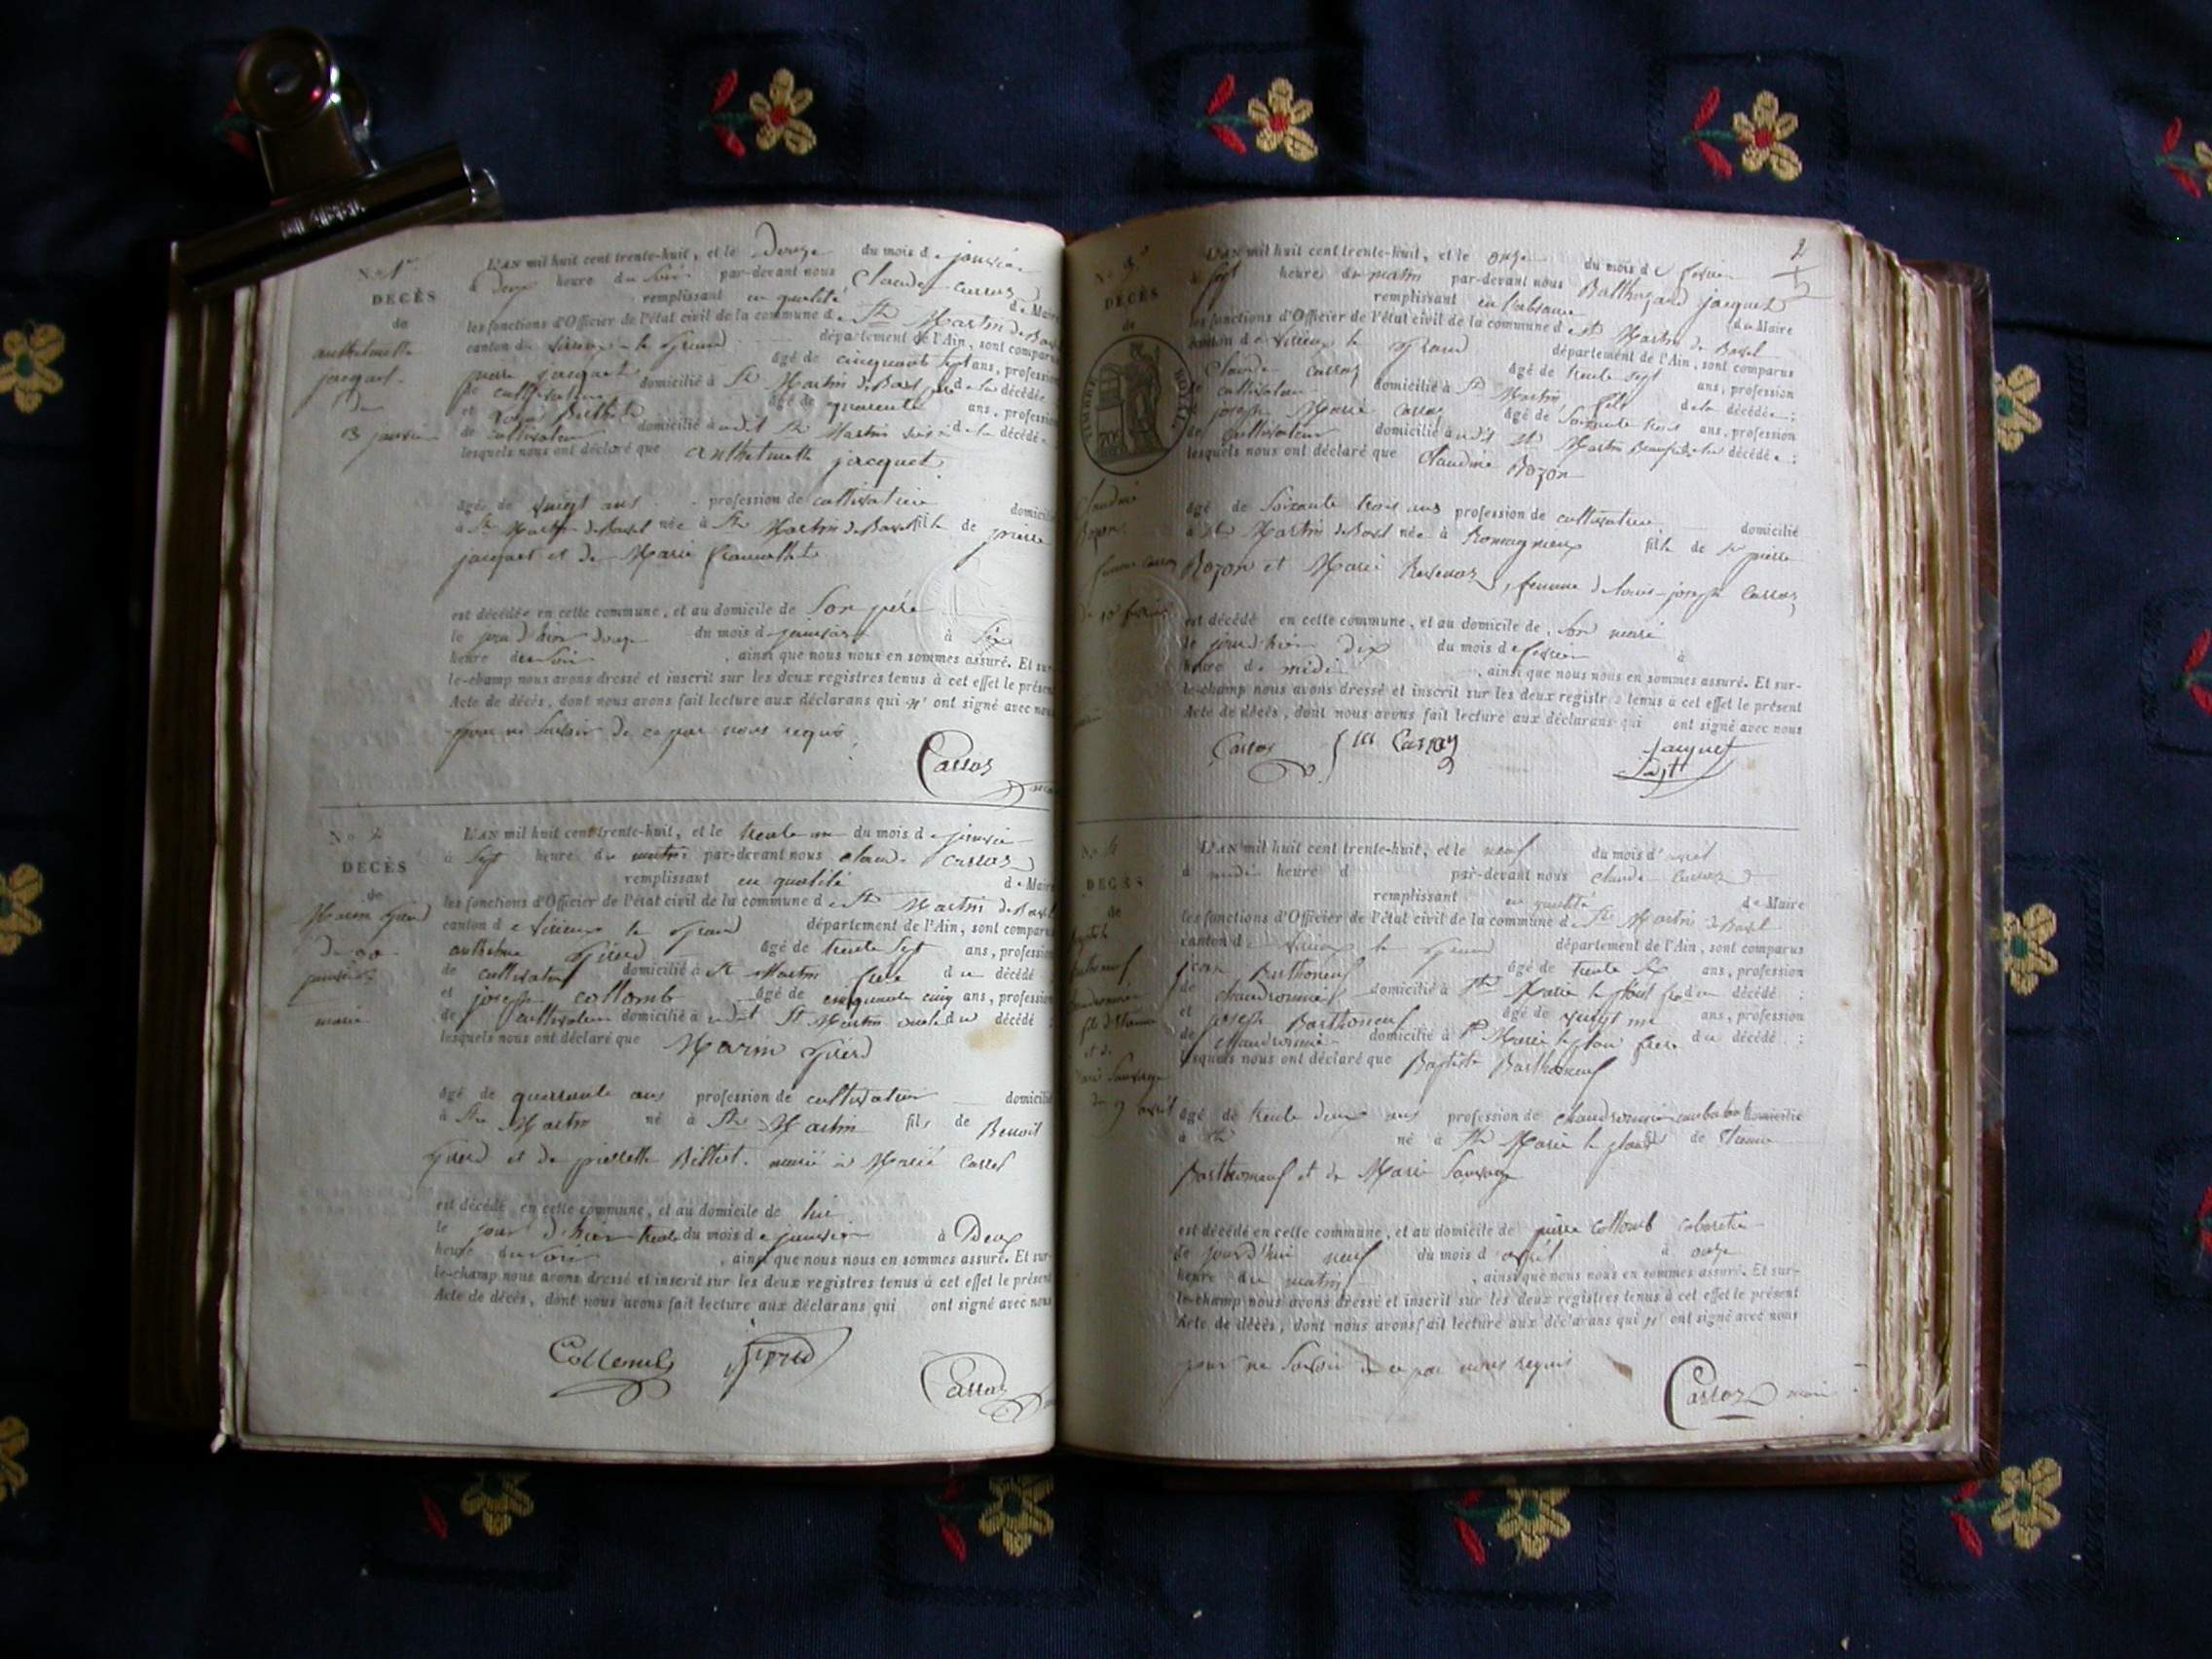 N.° 1er
DÉCÈS
de
anthelmette
jacquet
Du
13 janvier
L'AN mil huit cent trente-huit, et le Douze du mois de janvier
à Deux heure du Soir par-devant nous Claude Carraz
remplissant en qualité de Maire
les fonctions d'Officier de l'état civil de la commune de St Martin de Bavel
canton de virieux le Grand département de l'Ain, sont comparus
pierre jacquet âgé de cinquante sept ans, profession
de cultivateur domicilié à St Martin de Bavel père de la décédée
et Berthet âgé de quarante ans, profession
de cultivateur domicilié audit St Martin de la décédée
lesquels nous ont déclaré que anthelmette jacquet
âgée de vingt ans profession de cultivatrice domicilié
à St Martin de Bavel née à St Martin de Bavel fille de pierre
jacquet et de Marie
est décédée en cette commune, et au domicile de Son père
le jour d'hier douze du mois de janvier à Six
heure du Soir , ainsi que nous nous en sommes assuré. Et sur-
le-champ nous avons dressé et inscrit sur les deux registres tenus à cet effet le présent
Acte de décès, dont nous avons fait lecture aux déclarans qui n'ont signé avec nous
pour ne Savoir de ce par nous requis
Carraz
N.° 2
DÉCÈS
de
Marin Girerd
Du 30
janvier
marié
L'AN mil huit cent trente-huit, et le trente un du mois de janvier
à Sept heure du matin par-devant nous claude Carraz
remplissant en qualité de Maire
les fonctions d'Officier de l'état civil de la commune de St Martin de Bavel
canton de Virieux le Grand département de l'Ain, sont comparus
anthelme Girerd âgé de trente Sept ans, profession
de cultivateur domicilié à St Martin frère du décédé
et joseph collomb âgé de cinquante cinq ans, profession
de cultivateur domicilié audit St Martin oncle du décédé
lesquels nous ont déclaré que Marin Girerd
âgé de quarante ans profession de cultivateur domicilié
à St Martin né à St Martin fils de Benoit
Girerd et de pierrette Berthet marié à Marie Carrel
est décédé en cette commune, et au domicile de lui
le jour d'hier trente du mois de janvier à Deux
heure du soir , ainsi que nous nous en sommes assuré. Et sur-
le-champ nous avons dressé et inscrit sur les deux registres tenus à cet effet le présent
Acte de décès, dont nous avons fait lecture aux déclarans qui ont signé avec nous
Collomb Girerd
Carraz
2
N.° 3
DÉCÈS
de
TIMBRE ROYAL
Claudine
Bozon
femme Carraz
Du 10 février
L'AN mil huit cent trente-huit, et le onze du mois de février
à Sept heure du matin par-devant nous Balthazard jacquet
remplissant en l'absence du Maire
les fonctions d'Officier de l'état civil de la commune de St Martin de Bavel
canton de Virieux le Grand département de l'Ain, sont comparus
Claude Carraz âgé de trente sept ans, profession
de cultivateur domicilié à St Martin fils de la décédée ;
et joseph Marie Carraz âgé de Soixante trois ans, profession
de cultivateur domicilié audit St Martin Beaufrère de la décédée ;
lesquels nous ont déclaré que Claudine Bozon
âgé de Soixante trois ans profession de cultivatrice domicilié
à St Martin de Bavel née à Romagnieux fille de pierre
Bozon et Marie , femme de louis joseph Carraz
est décédé en cette commune, et au domicile de Son mari
le jour d'hier dix du mois de février à
heure de midi , ainsi que nous nous en sommes assuré. Et sur-
le-champ nous avons dressé et inscrit sur les deux registres tenus à cet effet le présent
Acte de décès, dont nous avons fait lecture aux déclarans qui ont signé avec nous
Carraz Carraz Jacquet
Adjt
N.° 4
DÉCÈS
de
fils d'Etienne
et de
Marie Sauvage
Du 9 avril
L'AN mil huit cent trente-huit, et le neuf du mois d'avril
à midi heure d par-devant nous claude Carraz
remplissant en qualité de Maire
les fonctions d'Officier de l'état civil de la commune de St Martin de Bavel
canton de Virieux le Grand département de l'Ain, sont comparus
jean Barthoneuf âgé de trente Six ans, profession
de chaudronnier domicilié à Ste Marie le plout du décédé ;
et joseph Barthoneuf âgé de vingt ans, profession
de chaudronnier domicilié à Ste Marie frère du décédé ;
lesquels nous ont déclaré que Baptiste Barthoneuf
âgé de trente deux ans profession de chaudronnier ambulant domicilié
à né à Ste Marie le de Etienne
Barthoneuf et de Marie Sauvage
est décédé en cette commune, et au domicile de pierre Collomb cabaretier
le jourd'hui neuf du mois d'avril à onze
heure du matin , ainsi que nous nous en sommes assuré. Et sur-
le-champ nous avons dressé et inscrit sur les deux registres tenus à cet effet le présent
Acte de décès, dont nous avons fait lecture aux déclarans qui n'ont signé avec nous
pour ne Savoir de ce par nous requis
Carraz maire